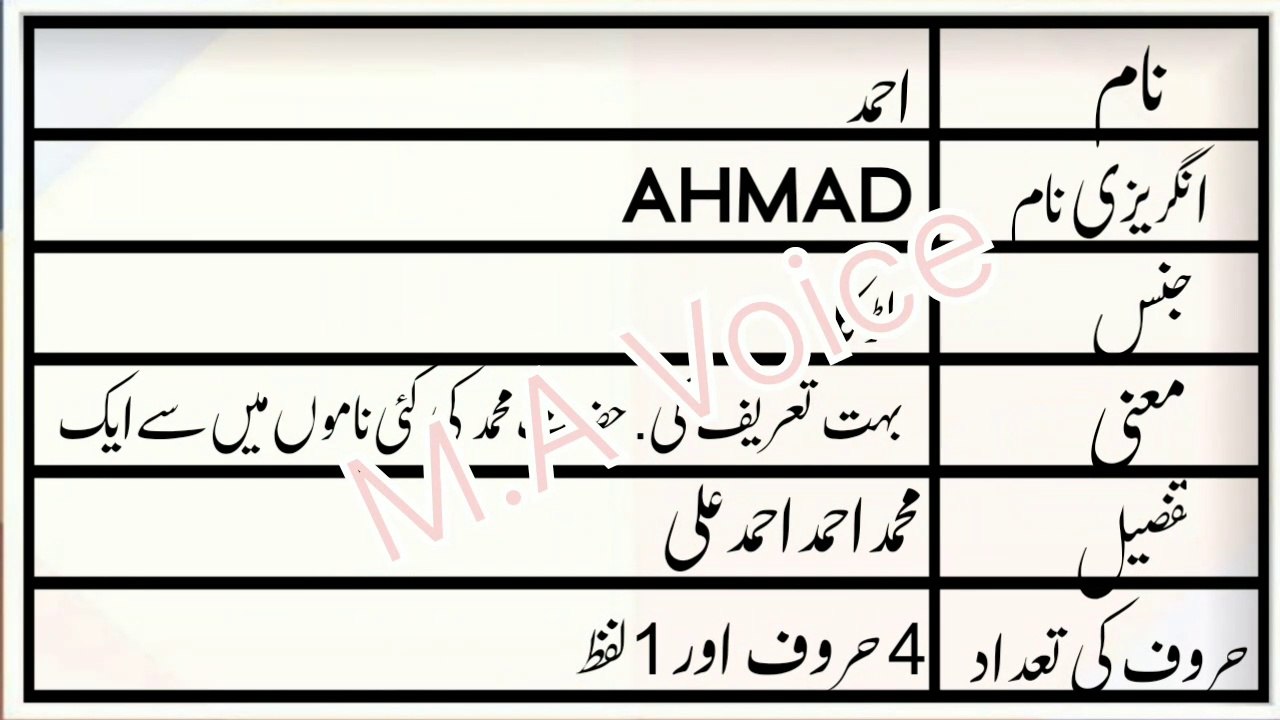 نام احمد
انگریزی نام AHMAD
جنس
معنی بہت تعریف کی. محمد کی کئی ناموں میں سے ایک
تفصیل محمد احمد احمد علی
حروف کی تعداد 4 حروف اور 1 لفظ
M.A Voice